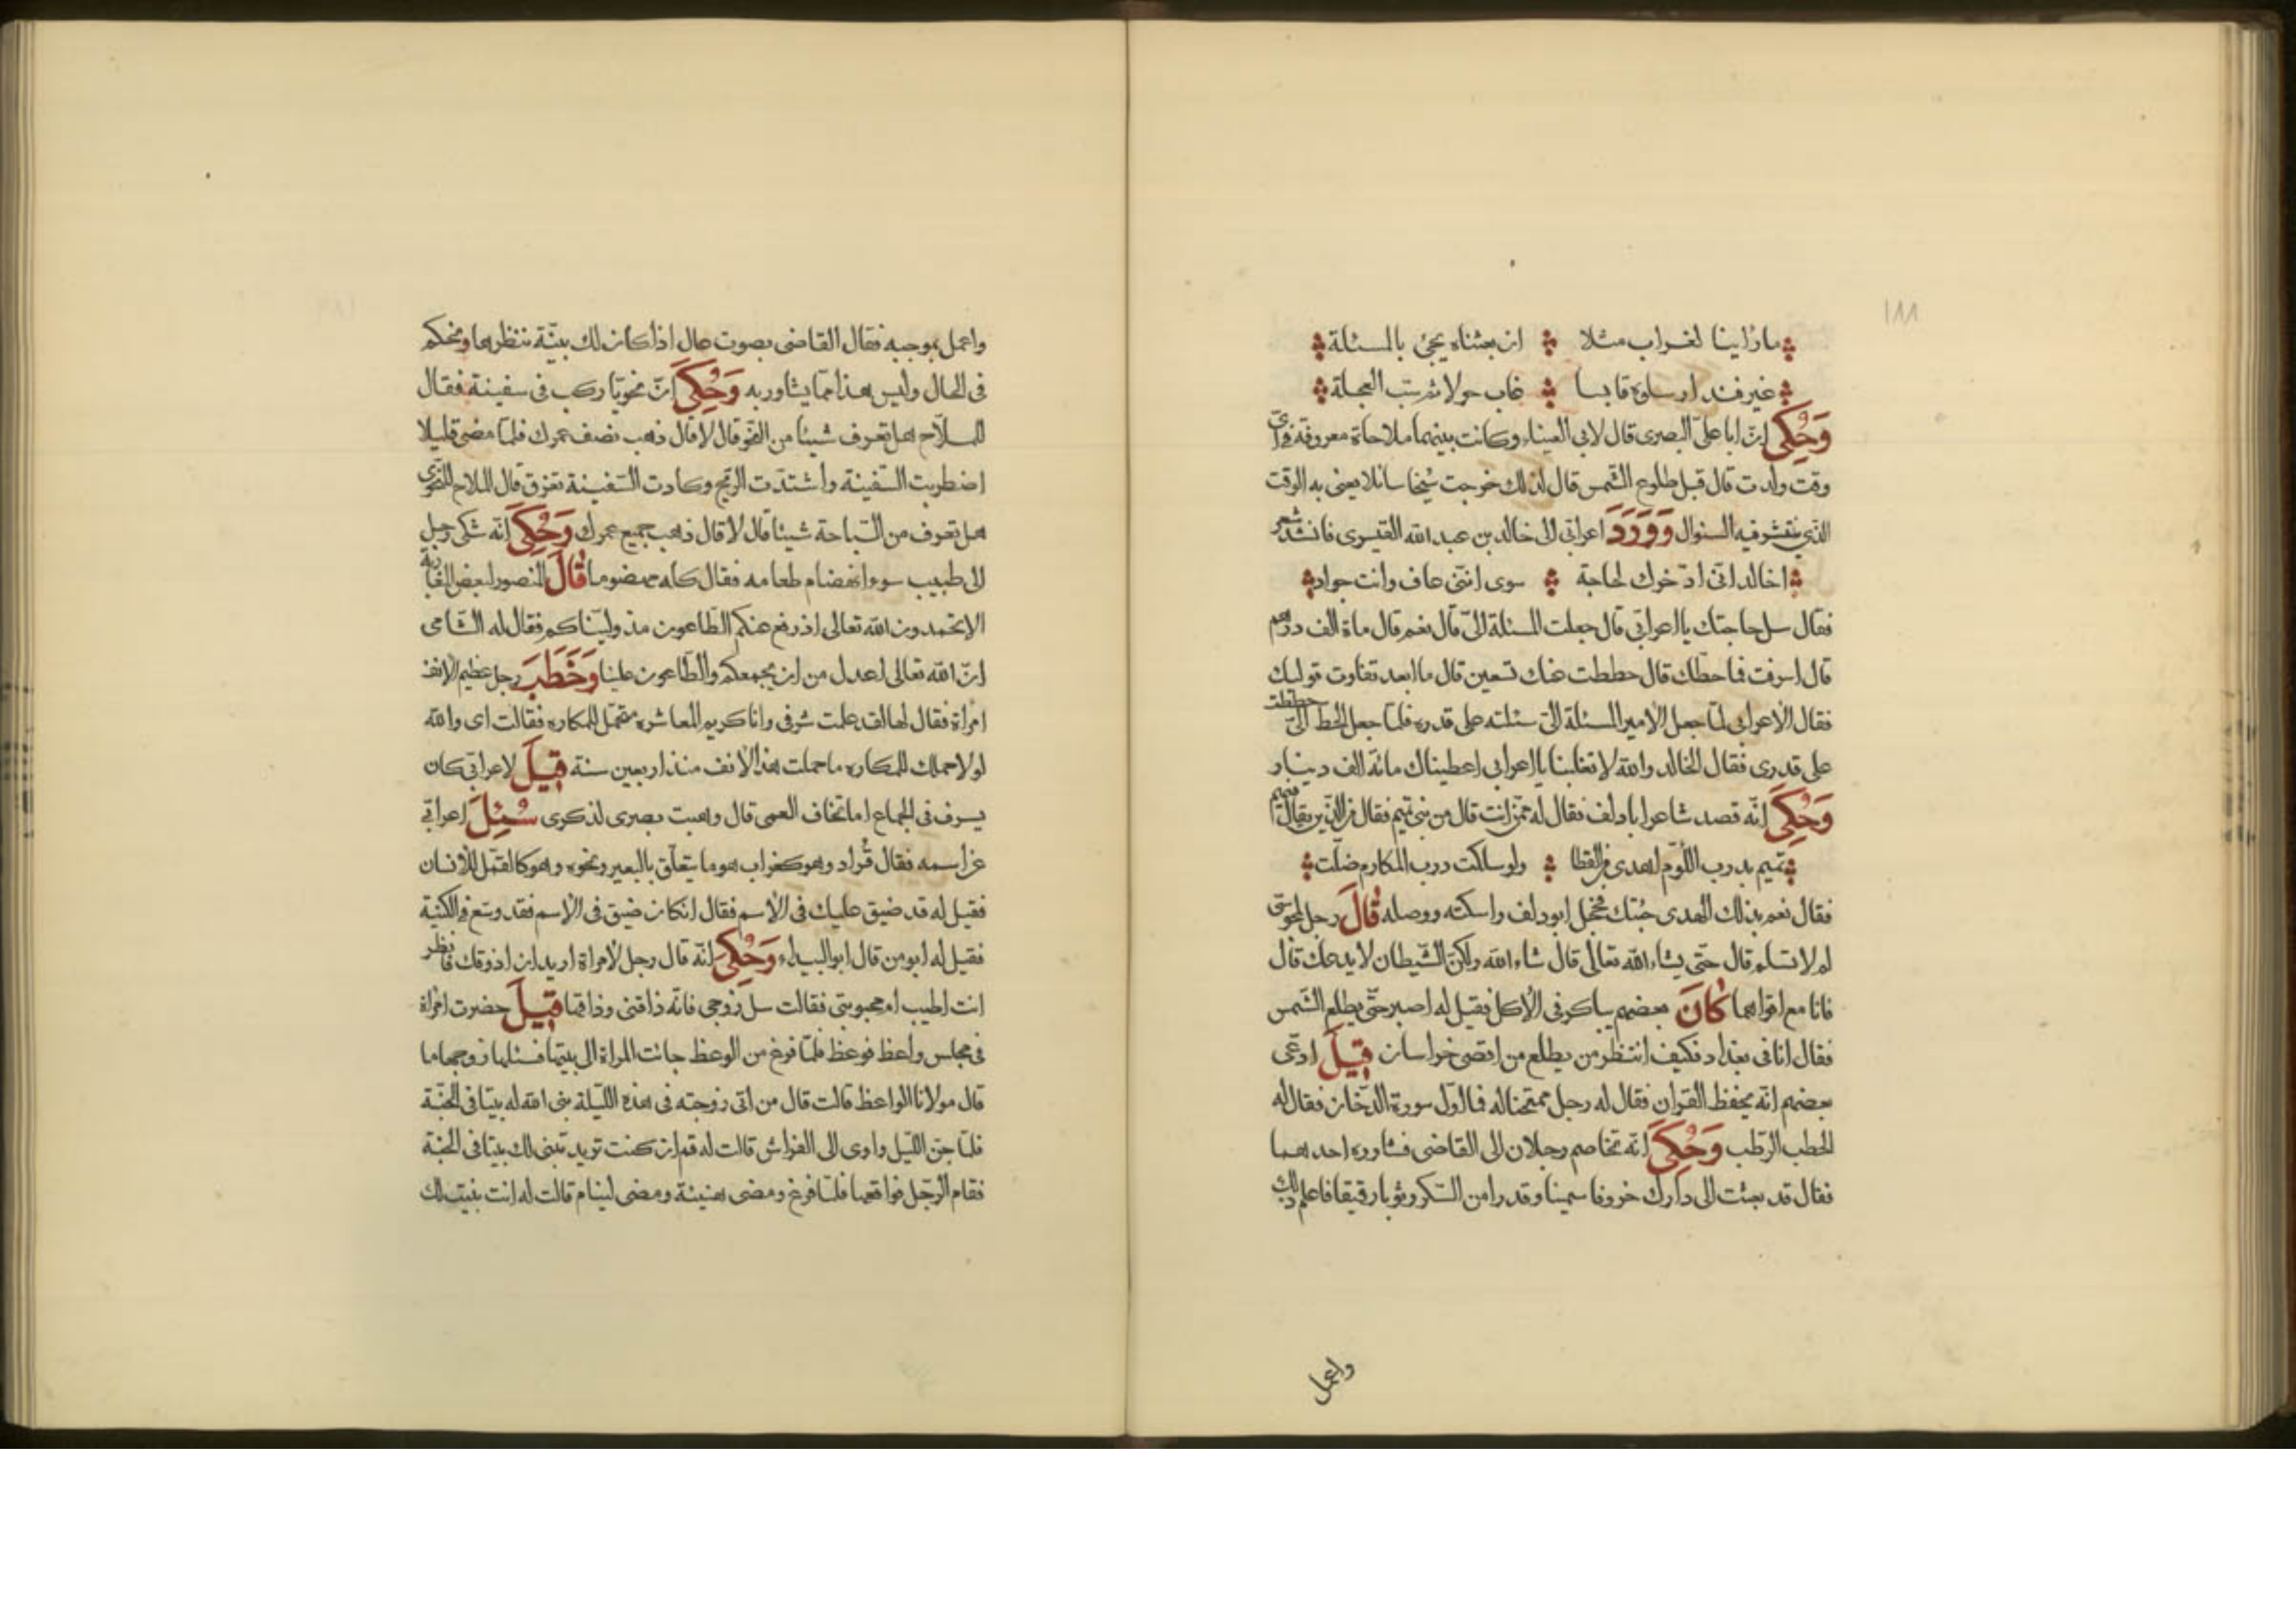 ١٨٨
ما رأينا لغراب مثلا ان بعثناه يجئ بالمسئلة
غير فند ارسلوه قابسا غاب حولا ثم سب العجلة
وَحُكِىَ انّ ابا علىّ البصرى قال لابى العيناء وكانت بينهما ملاحاة معروفة فى اىّ
وقت ولدت قال قبل طلوع الشّمس قال لذلك خرجت شيخا سائلا يعنى به الوقت
الذّى ينتشر فيه السئوال وَوَرَدَ اعرابّى الى خالد بن عبد الله القيسرى فانشد شعر
اخالد انّى ادّخوك لحاجة سوى انّنى عاف وانت جواد
فقال سل حاجتك يا اعرابّى قال جعلت المسئلة الىّ قال نعم قال ماة الف درهم
قال اسرفت فما حطّك قال حططت عنك تسعين قال ما ابعد تفاوت قوليك
فقال الاعرابى لمّا جعل الامير المسئلة الىّ سئلته على قدره فلمّا جعل الحط الىّ حططت
على قدرى فقال الخالد والله لا تغلبنا يا اعرابى اعطيناك مائة الف دينار
وَحُكِىَ انّه قصد شاعر ابا دلف فقال له ممّن انت قال من بنى تميم فقال من الذّين يقال فيهم
تميم بدرب اللّوم اهدى من القطا ولو سلكت درب المكارم ضلّت
فقال نعم بذلك الهدى جئتك فخجل ابو دلف واسكته ووصله قَالَ رجل لمجوسّى
لم لا تسلم قال حتّى يشاء الله تعالى قال شاء الله ولكنّ الشّيطان لا يدعك قال
فانا مع اقواهما كَانَ بعضهم يباكر فى الاكل فقيل له اصبر حتّى يطلع الشّمس
فقال انا فى بغداد فكيف انتظر من يطلع من اقصى خراسان قِيلَ ادّعى
بعضهم انّه يحفظ القران فقال له رجل ممتحنا له فما اوّل سورة الدّخان فقال له
الحطب الرّطب وَحُكِىَ انّه تخاصم رجلان الى القاضى فشاوره احدهما
فقال قد بعثت الى دارك خروفا سمينا وقدرا من السّكر وثوبا رقيقا فاعلم ذلك
واعمل
واعمل بموجبه فقال القاضى بصوت عال اذا كان لك بيّنة ننتظرها ونحكم
فى الحال وليس هذا ممّا يشاور به وَحُكِىَ انّ نحويّا ركب فى سفينة فقال
للملّاح اهل تعرف شيئا من النّحو قال لا قال ذهب نصف عمرك فلمّا مضى قليلا
اضطربت السّفينة واشتدّت الرّيح وكادت السّفينة تغرق قال الملاح للنّحوى
هل تعرف من السّباحة شيئا قال لا قال ذهب جميع عمرك وَحُكِىَ انّه شكى رجل
الى طبيب سوء انهضام طعامه فقال كله مهضوما قَالَ المنصور لبعض المغاربة
الا تحمدون الله تعالى اذ رفع عنكم الطّاعون مذ وليّناكم فقال له الشّامى
انّ الله تعالى اعدل من ان يجمعكم والطّاعون علينا وَخَطَبَ رجل عظيم الانف
امرأة فقال لها لقد علمت شرفى وانا كريم المعاشره متحمّل للمكاره فقالت اى والله
لولا حملك للمكاره ما حملت هذا الانف منذ اربعين سنة قِيلَ لاعرابّى كان
يسرف فى الجماع اما تخاف العمى قال وهبت بصرى لذكرى سُئِلَ اعرابّى
عن اسمه فقال قُراد وهو كغراب هو ما يتعلّق بالبعير ونحوه وهو كالقمّل للانسان
فقيل له قد ضيق عليك فى الاسم فقال ان كان ضيق فى الاسم فقد وسّع فى الكنية
فقيل له ابو من قال ابو البيداء وَحُكِىَ انّه قال رجل لامراة اريد ان اذوقك فانظر
انت اطيب ام محبوبتى فقالت سل زوجى فانّه ذاقنى وذاقها قِيلَ حضرت امرأة
فى مجلس واعظ فوعظ فلمّا فرغ من الوعظ جائت المراة الى بيتها فسئلها زوجها ما
قال مولانا الواعظ قالت قال من اتى زوجته فى هذه اللّيلة بنى الله له بيتا فى الجنّة
فلمّا جنّ اللّيل واوى الى الفراش قالت له قم ان كنت تريد تبنى لك بيتا فى الجنّة
فقام الرّجل فواقعها فلمّا فرغ ومضى هنيئة ومضى لينام قالت له انت بنيت لك